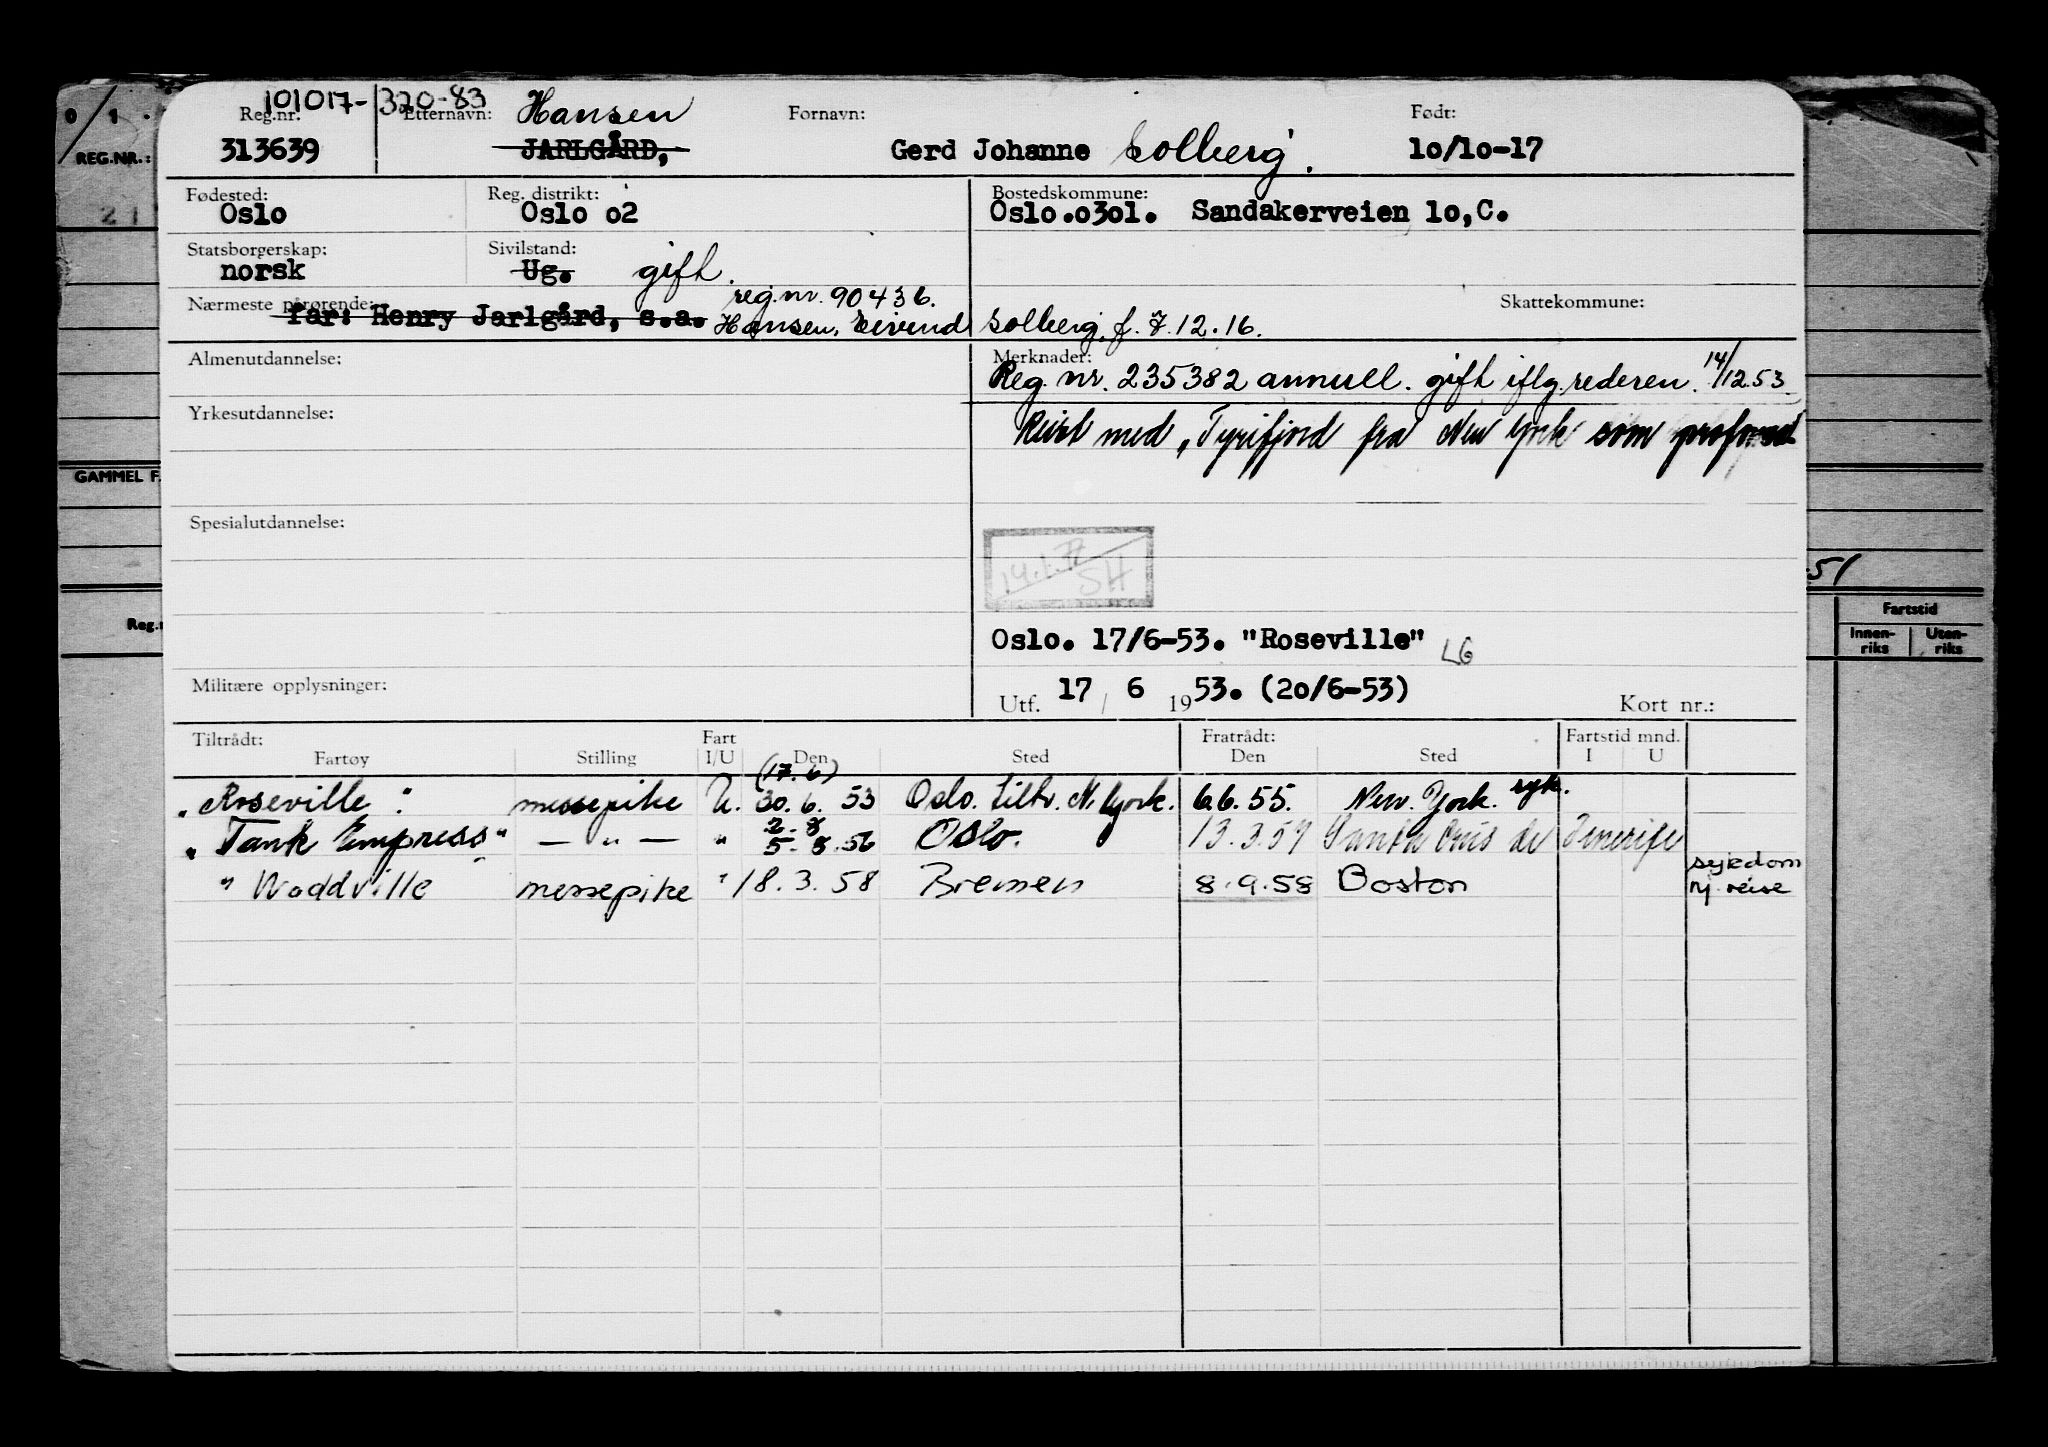 101017-370-83
Reg.nr. Etternavn: Hansen Fornavn: Født:
313639 JARLGÅRD, Gerd Johanne Solberg. 10/10-17
Fødested: Reg. distrikt: Bostedskommune:
Oslo Oslo 02 Oslo.0301. Sandakerveien 10,C.
Statsborgerskap: Sivilstand:
norsk Ug. gift.
Nærmeste pårørende: reg.nr. 90436. Skattekommune:
far: Henry Jarlgård, s.a. Hansen, Eivind Solberg, f. 7.12.16.
Almenutdannelse: Merknader:
Reg. nr. 235382 annull. gift iflg. rederen. 14/12.53
Yrkesutdannelse:
Reist med "Tyrifjord fra New York som
Spesialutdannelse:
14.1.77
SH
Oslo. 17/6-53. "Roseville" LG
Militære opplysninger:
Utf. 17 / 6 1953. (20/6-53) Kort nr.:
Tiltrådt: Fart Fratrådt: Fartstid mnd.
Fartøy Stilling I/U Den Sted Den Sted I U
(17.6)
"Roseville" messepike U. 30.6.53 Oslo. tiltr. N. York. 6.6.55. New York. syk.
2-8
"Tank Empress" — " — " 5.8.56 Oslo. 13.3.57 Santa Cruis de Tenerife
" Woddville messepike " 18.3.58 Bremen 8.9.58 Boston sykdom
hj. reise
0/1.
REG.NR.:
21
GAMMEL F.
Reg.
51
Fartstid
Innen-
riks
Uten-
riks